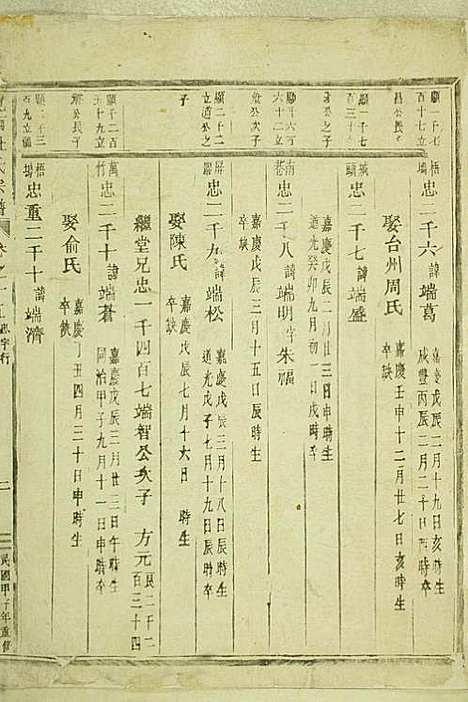 願一千七
百十七立
悟塲
忠二千六諱端葛
嘉慶戊辰二月十九日亥時生
咸豐丙辰二月二十四日辰時卒
娶台州周氏
嘉慶壬申十二月廿七日亥時生
卒缺
忠二千七諱端盛
嘉慶戊辰二月二十三日申時生
道光癸卯九月初一日戌時卒
六十二立
忠二千八諱端明字朱福
嘉慶戊辰三月十五日辰時生
卒缺
願二千二
立道公之
子
忠二千九諱端松
嘉慶戊辰三月十八日辰時生
道光戊子七月十九日辰時卒
娶陳氏
嘉慶戊辰七月十六日 時生
卒缺
繼堂兄忠一千四百七端智公次子 方元
良二千二
百三十四
願千二百
五十九立
公長子
萬竹
忠二千十諱端蒼
嘉慶戊辰三月廿三日午時生
同治甲子九月十一日申時卒
娶俞氏
嘉慶丁丑四月三十日申時生
卒缺
願二千三
百九立
悟塲
忠重二千十諱端濟
氏宗譜
卷之十五
忠字行
二
民國甲子年重修